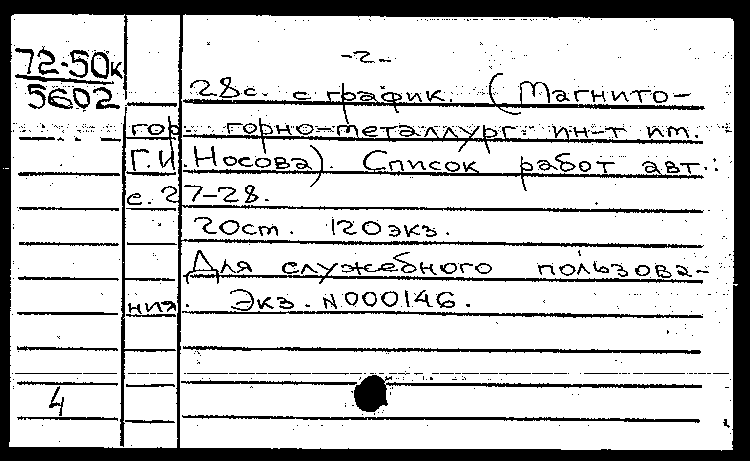 72-50к
5602
-2-
28с. с график. (Магнито-
гор. горно-металлург. ин-т им.
Г.И. Носова). Список работ авт.:
с. 27-28.
20ст. 120экз.
Для служебного пользова-
ния. Экз. N000146.
4